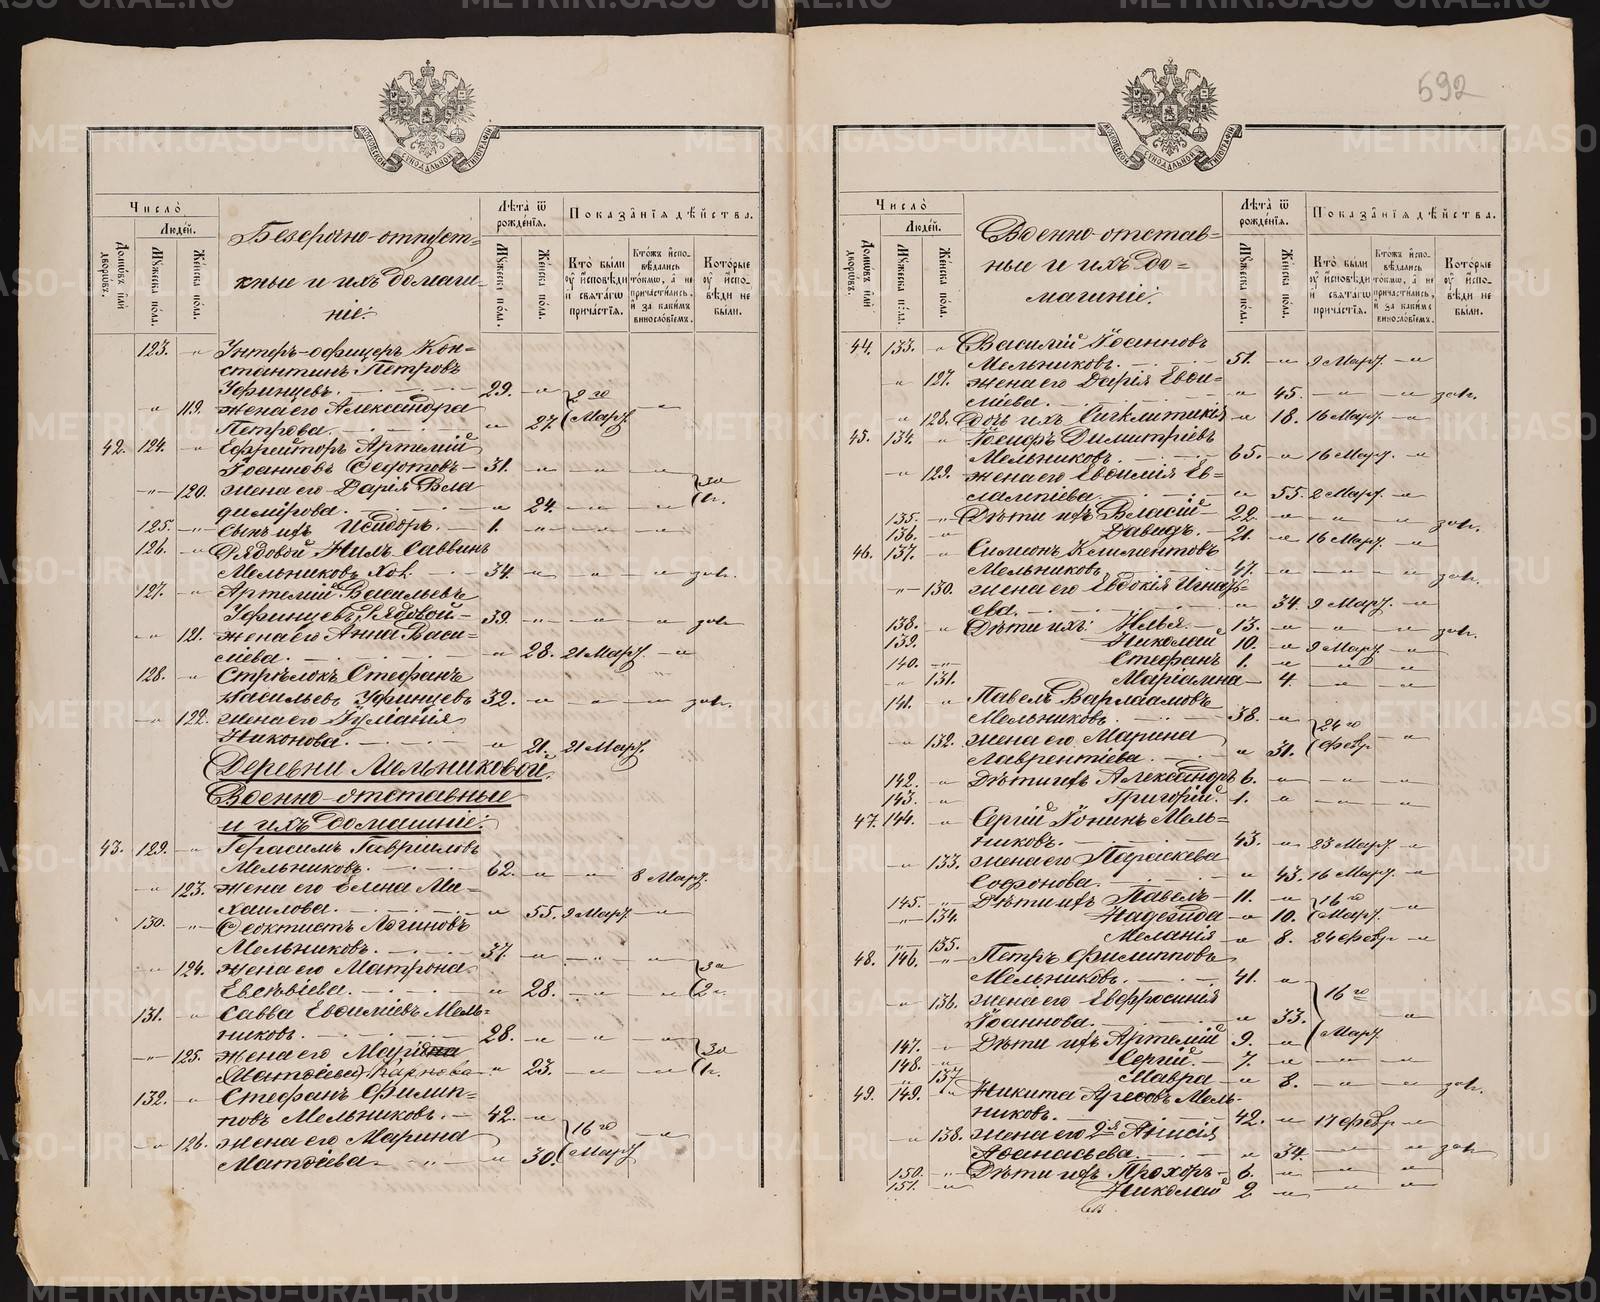 592
МОСКОВСКОЙ СУНОДАЛЬНОЙ ТИПОГРАФІИ
Число̀
Людей.
Домѡвъ или дворѡвъ.
Мꙋжеска пола.
Женска пола.
Безсрочно-отпуст-
кные и ихъ домаш-
ніе:
Лѣта ѿ рожденїѧ.
Мꙋжеска пола.
Женска пола.
Показанїѧ дѣйства.
Кто были оу исповѣди и свѧтагѡ причастїѧ.
Ктожъ исповѣдались токмѡ, а не причастились, и за какимъ винословїемъ.
Которые оу исповѣди не были.
123. " Унтеръ-офицеръ Кон-
стантинъ Петровъ
Уфинцевъ. 29. "
" 119. жена его Александра
Петрова. " 27. 2го Мар. "
42. 124. " Ефрейторъ Артемій
Іоанновъ Федотовъ 31. " " "
" 120. жена его Дарія Вла
димірова. " 24. " "
125. " Сынъ ихъ Исидоръ. 1. " " "
126. " Рядовой Нилъ Саввинъ
Мельниковъ Хол. 34. " " "
127. " Артемій Васильевъ
Уфинцевъ, Рядовой 39. " " "
" 121. жена его Анна Васи-
ліева. " 28. 21 Мар. "
128. " Стрѣлокъ Стефанъ
Васильевъ Уфинцевъ 32. " " "
" 122. жена его Іуліанія
Никонова. " 21. 21 Мар.
Деревни Мельниковой.
Военно-отставные
и ихъ домашніе:
43. 129. " Герасимъ Гавриловъ
Мельниковъ. 62. " " 8 Мар.
" 123. жена его Елена Ми-
хаилова. " 55. 9 Мар. "
130. " Феоктистъ Логиновъ
Мельниковъ. 37. " " "
" 124. жена его Матрона
Евсѣвіева. " 28. " "
131. " Савва Евѳиміевъ Мель-
никовъ. 28. " " "
" 125. жена его
(Матѳіева) Карпова " 23. " "
132. " Стефанъ Филип-
повъ Мельниковъ. 42. "
" 126. жена его Марина
Матѳіева " 30. 16го Мар. "
Число̀
Людей.
Домѡвъ или дворѡвъ.
Мꙋжеска пола.
Женска пола.
Военно-отстав-
ные и ихъ до-
машніе:
Лѣта ѿ рожденїѧ.
Мꙋжеска пола.
Женска пола.
Показанїѧ дѣйства.
Кто были оу исповѣди и свѧтагѡ причастїѧ.
Ктожъ исповѣдались токмѡ, а не причастились, и за какимъ винословїемъ.
Которые оу исповѣди не были.
44. 133. " Василій Іоанновъ
Мельниковъ. 51. " 9 Мар. "
" 127. жена его Дарія Евѳи-
міева. " 45. " "
" 128. Дочь ихъ Сигклитикія " 18. 16 Мар. "
45. 134. " Іосифъ Димитріевъ
Мельниковъ. 65. " 16 Мар. "
" 129. жена его Евѳимія Ев-
лампіева. " 55. 2 Мар. "
135. " Дѣти ихъ Власій 22. " " "
136. " Давидъ. 21. " 16 Мар. "
46. 137. " Симеонъ Климентовъ
Мельниковъ 47. " " "
" 130. жена его Евдокія Игнать-
ева. " 34. 9 Мар. "
138. " Дѣти ихъ: Илья 13. " " "
139. Николай 10. " 9 Мар. "
140. " Стефанъ 1. " " "
" 131. Маріамна " 4. " "
141. " Павелъ Варлаамовъ
Мельниковъ. 38. "
" 132. жена его Марина
Лаврентіева. " 31. 24го Февр. "
142. " Дѣти ихъ Александръ 6. " " "
143. " Григорій. 1. " " "
47. 144. " Сергій Іонинъ Мель-
никовъ. 43. " 23 Мар. "
" 133. жена его Параскева
Софонова. " 43. 16 Мар. "
145. " Дѣти ихъ Павелъ 11. "
" 134. Надежда " 10. 16го Мар. "
" 135. Меланія " 8. 24 Февр. "
48. 146. " Петръ Филипповъ
Мельниковъ. 41. "
" 136. жена его Евфросинія
Іоаннова. " 33. 16го Мар. "
147. " Дѣти ихъ Артемій 9. "
148. " Сергій. 7. " " "
" 137. Мавра " 8. " "
49. 149. " Никита Мель-
никовъ. 42. " 17 Февр. "
" 138. жена его 2я Анисія
Аѳанасьева. " 34. " "
150. " Дѣти ихъ Прохоръ 6. " " "
151. " Николай 2 " " "